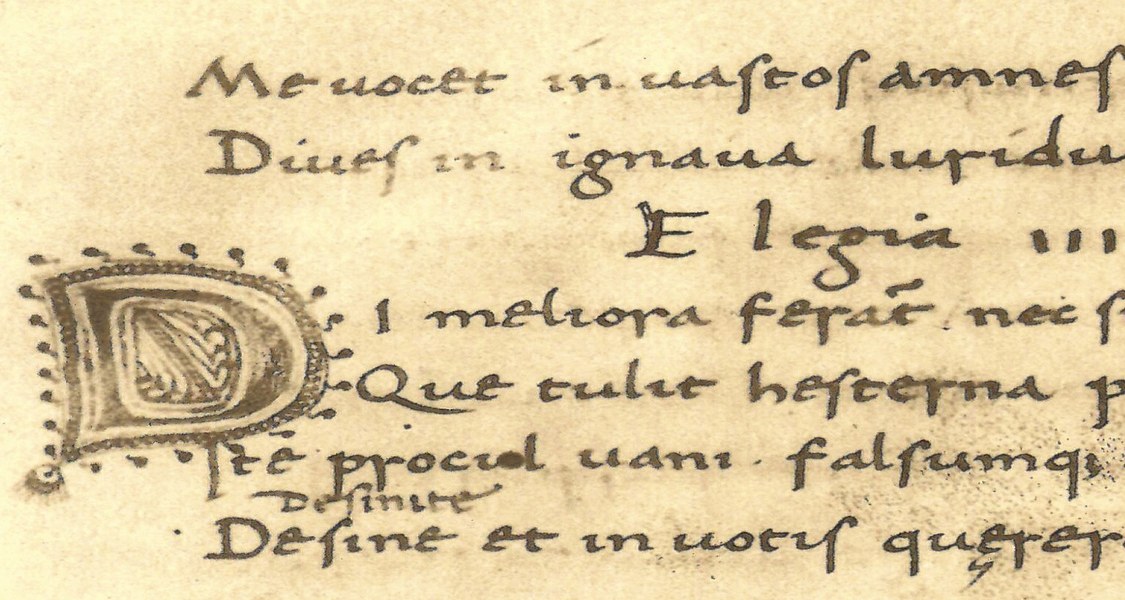 Me uocet in uastos amnes
Diues in ignaua luridu
Elegia III
DI meliora ferāt nec s
Que tulit hesterna p
Ite procul uani falsumq
Desinite
Desine et in uotis quęrer